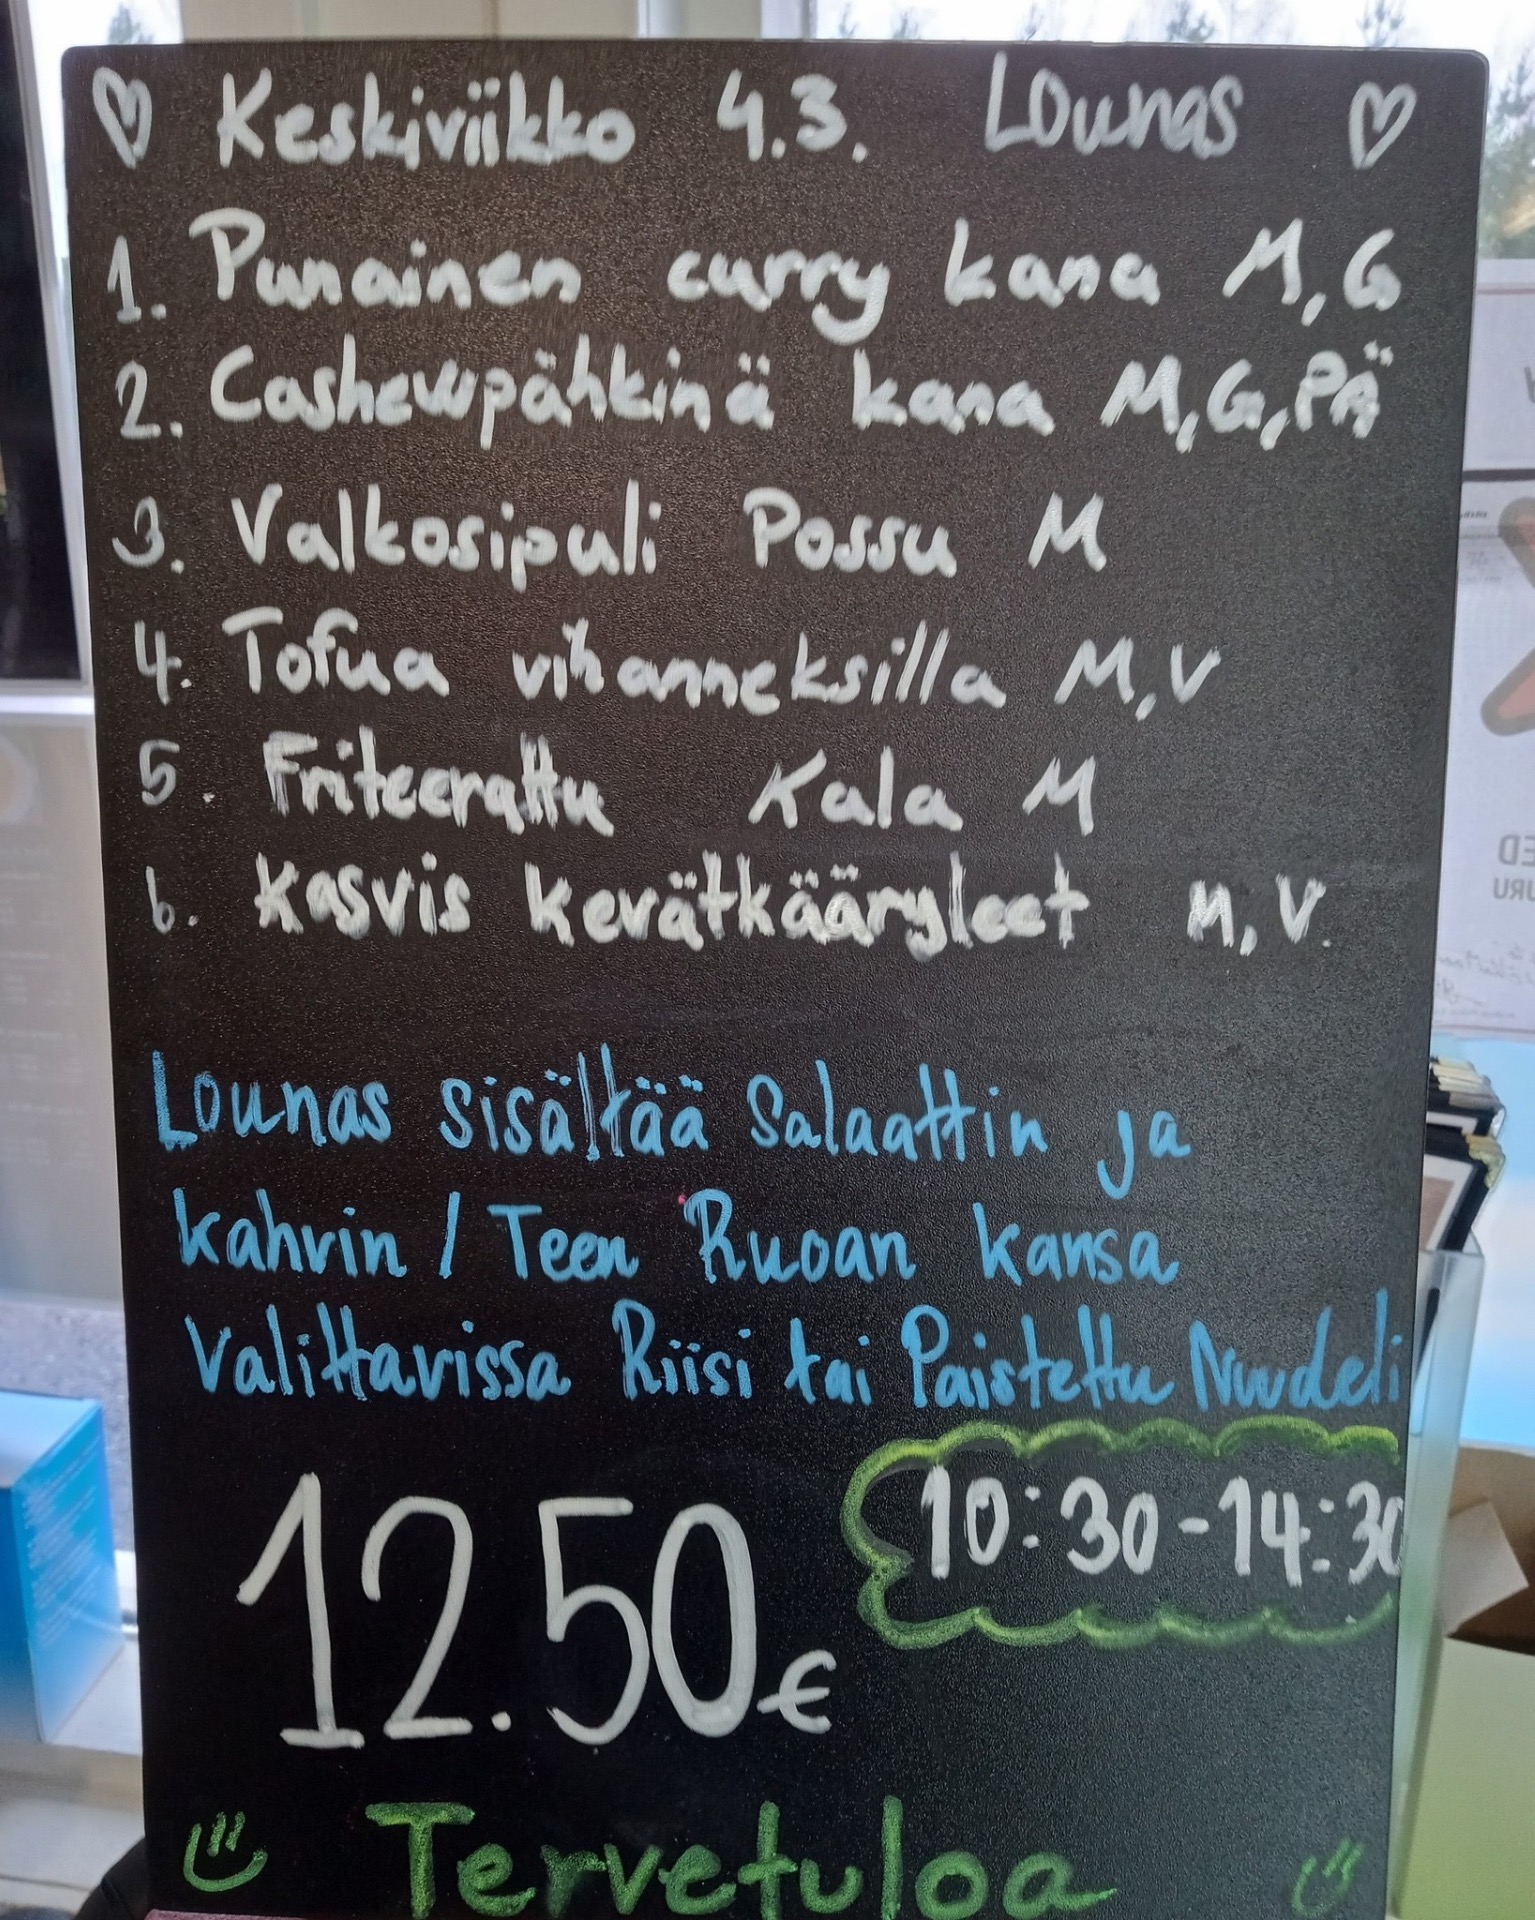 ♡ Keskiviikko 4.3. Lounas ♡
1. Punainen curry kana M, G
2. Cashewpähkinä kana M, G, PÄ
3. Valkosipuli Possu M
4. Tofua vihanneksilla M, V
5. Friteerattu Kala M
6. Kasvis kevätkääryleet M, V.
Lounas sisältää Salaattin ja
kahvin / Teen Ruoan kansa
Valittavissa Riisi tai Paistettu Nuudeli
10:30-14:30
12.50€
Tervetuloa
ED
URU